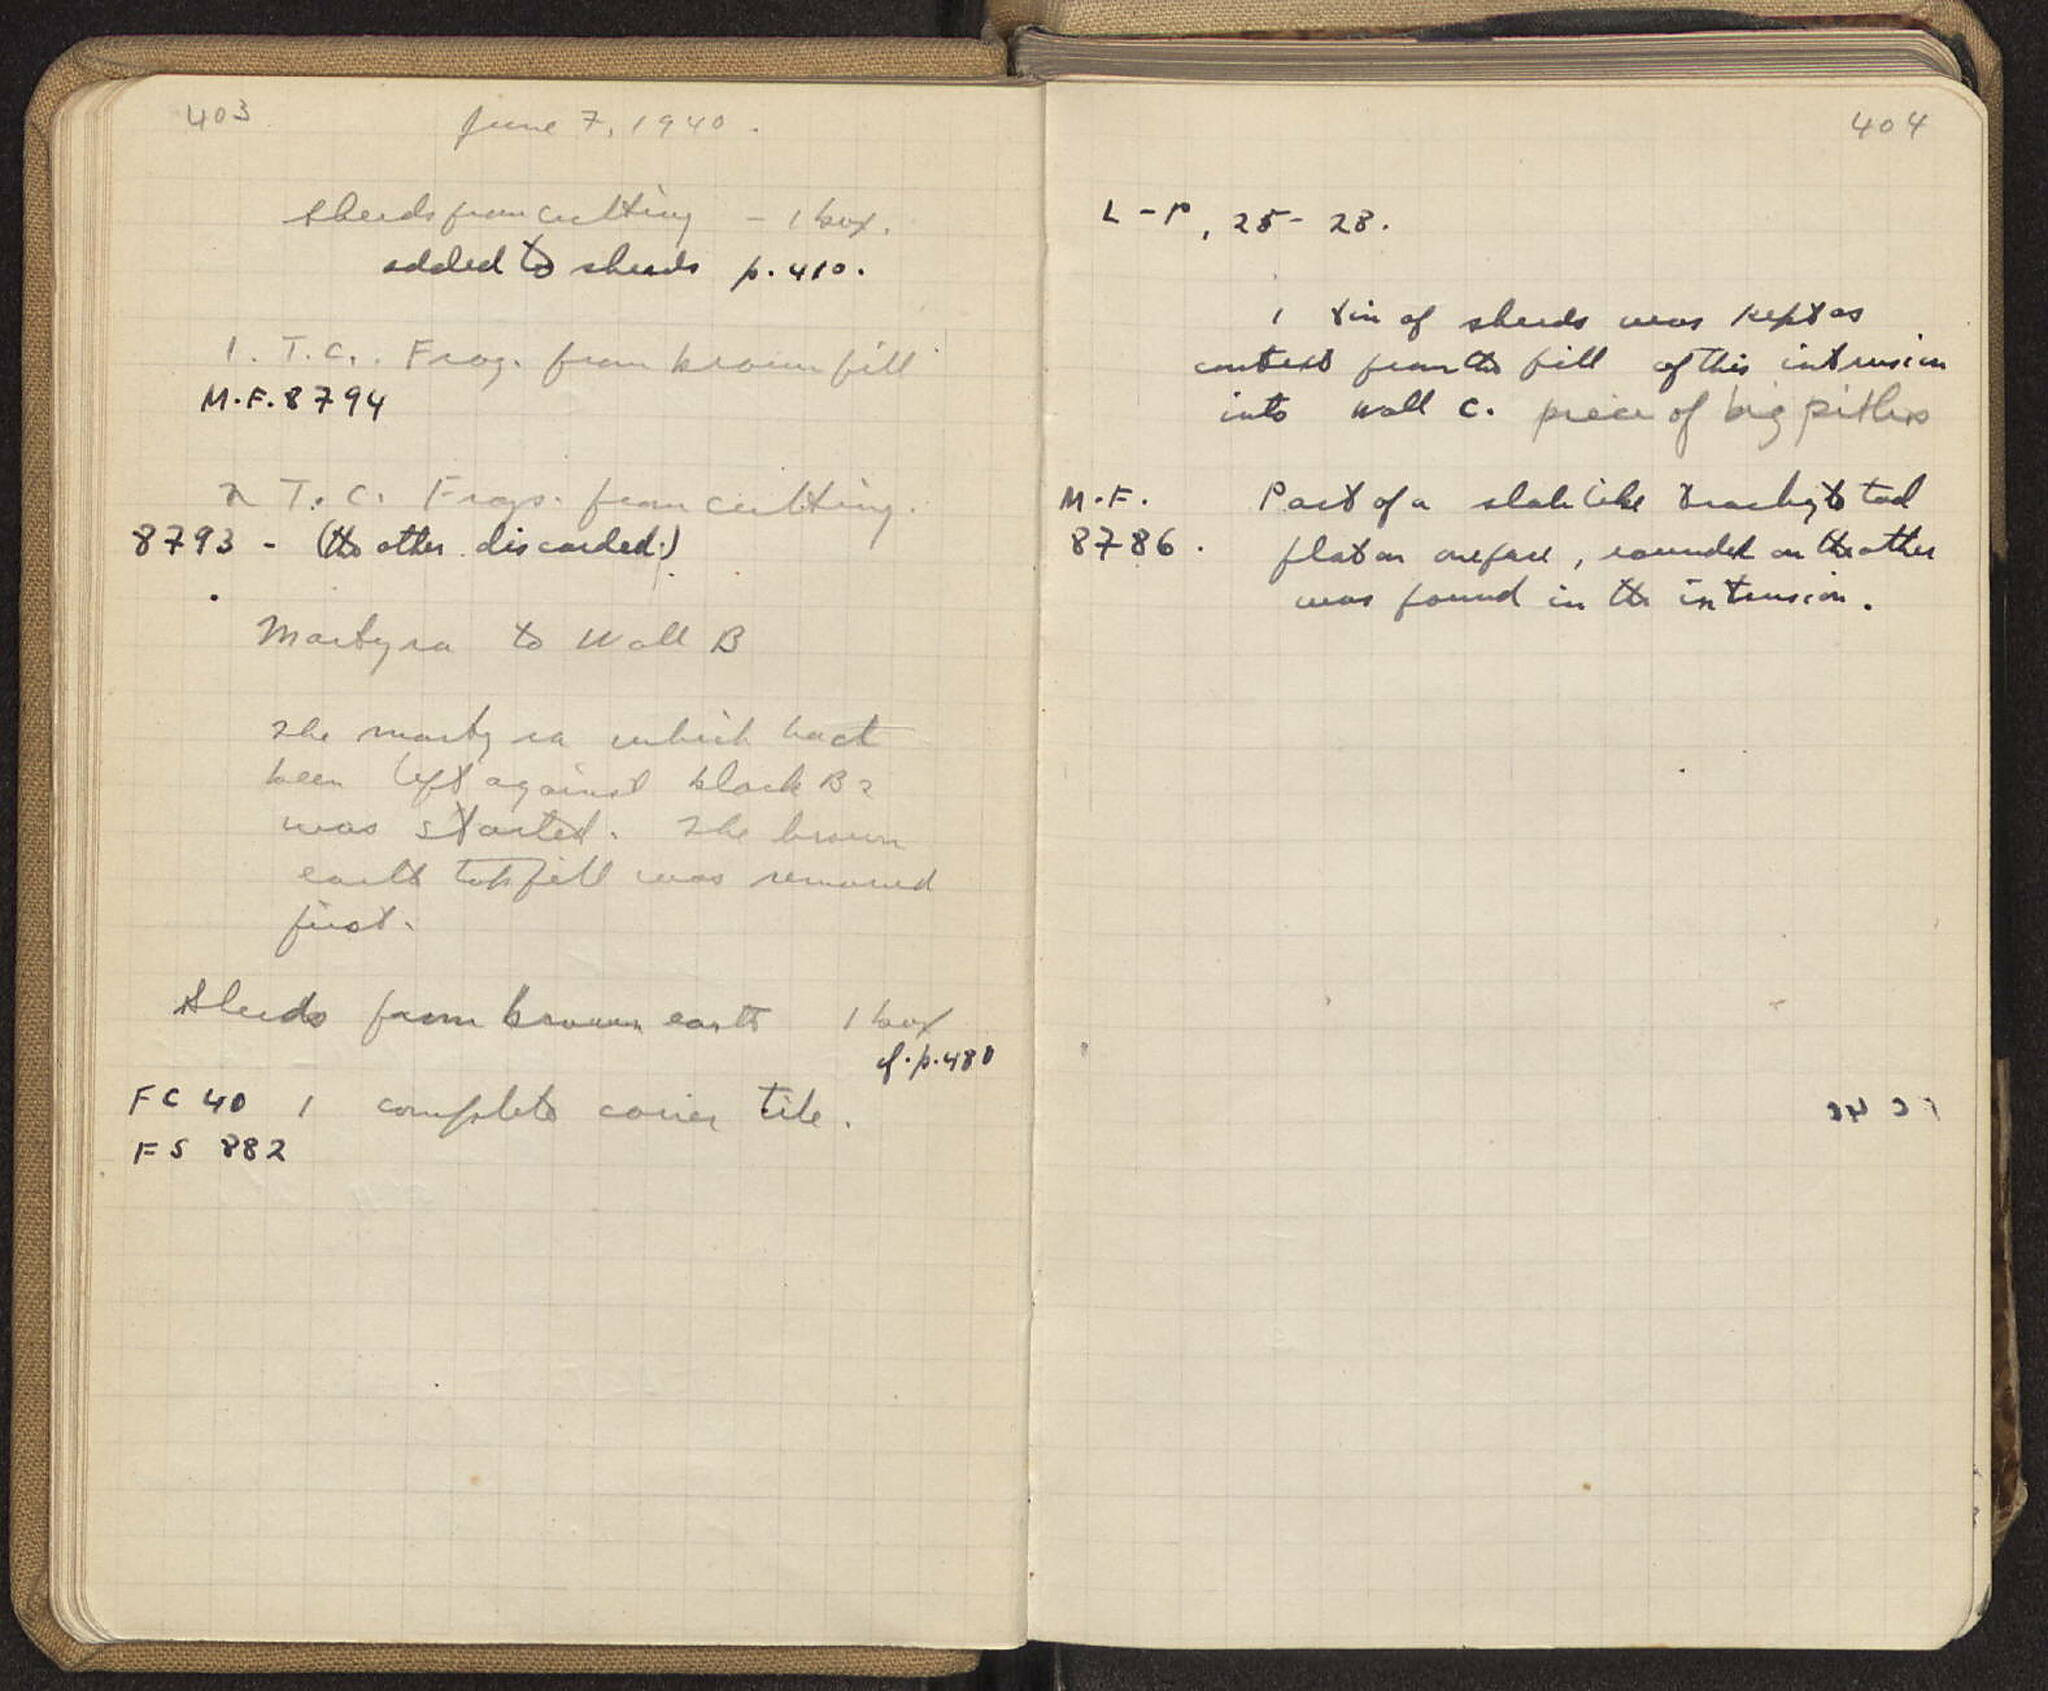 403
June 7, 1940.
Sherds from cutting - 1 box.
added to sherds p. 410.
1. T.C. Frag. from brown fill
M.F. 8794
2 T.C. Frags. from cutting.
8793 - (the other discarded.)
Martyra to Wall B
The martyra which had
been left against block B2
was started. The brown
earth top fill was removed
first.
Sherds from brown earth 1 box
cf. p. 480
FC 40 1 complete cover tile.
FS 882
404
L-P, 25-28.
1 tin of sherds was kept as
context from the fill of this intrusion
into wall C. piece of big pithos
M.F. Part of a slab like trachyte tool
8786. flat on one face, rounded on the other
was found in the intrusion.